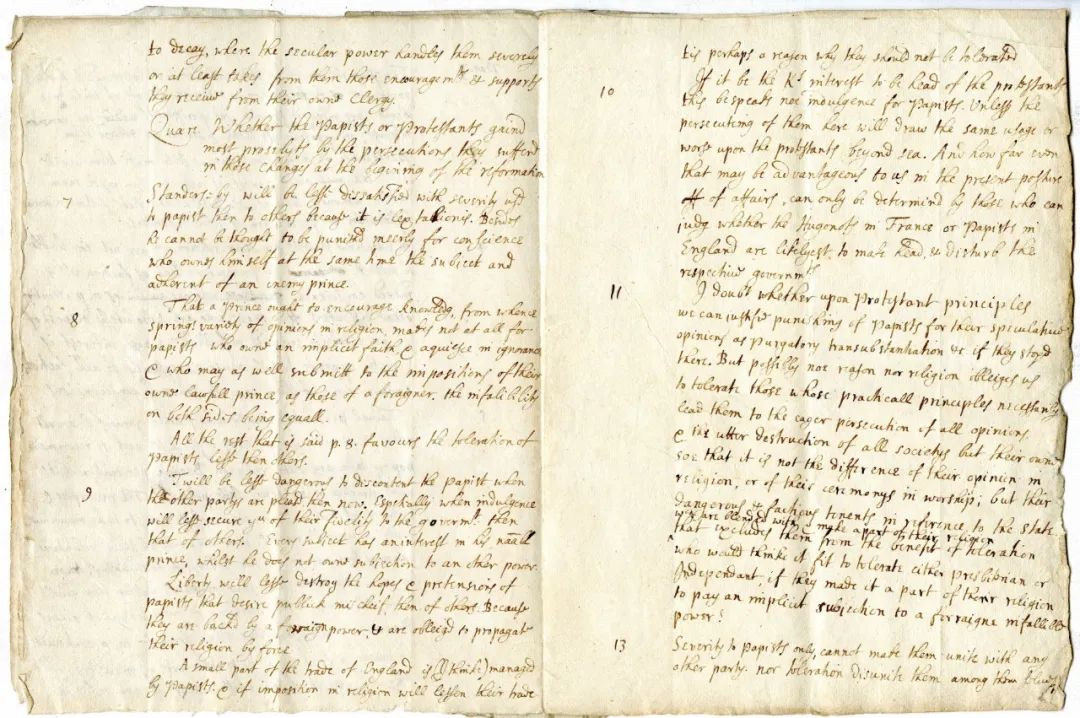 to decay, where the secular power handles them severely
or at least takes from them those encouragmts & supports
they receive from their owne Clergy.
Quære Whether the Papists or Protestants gaind
most proselyts by the persecutions they sufferd
in those changes at the begining of the reformation
7
Standers-by will be lesse dissatisfied with severity usd
to papist then to others because it is lex talionis. Besides
he cannot be thought to be punishd meerly for conscience
who owns himself at the same time the subject and
adherent of an enemy prince.
8
That a Prince ought to encourage knowledg, from whence
springs variety of opinions in religion, makes not at all for
papists who owne an implicit faith & aquiesce in ignorance
& who may as well submitt to the impositions of their
owne lawfull prince as those of a foraigner. the infalibility
on both sides being equall.
All the rest that is said p. 8. favours the toleration of
Papists lesse then others.
9
T'will be lesse dangerous to discontent the Papist when
the other partys are pleasd then now, Especially when indulgence
will lesse secure yu of their fidelity to the governmt. then
that of others. Every subject has an interest in his nãall
prince, whilst he does not owne subjection to an other power.
Liberty will lesse destroy the hopes & pretensions of
papists that desire publick mischeif then of others. Because
they are backd by a foraigne power & are obleigd to propagate
their religion by force
A small part of the trade of England is (I thinke) managed
by Papists. & if imposition in religion will lessen their trade
tis perhaps a reason why they should not be tolerated
10
If it be the Ks interest to be head of the protestants
this bespeaks noe indulgence for Papists. Unless the
persecuteing of them here will draw the same usage or
worse upon the protestants beyond sea. And how far even
that may be advantageous to us in the present posture
of affairs, can only be determind by those who can
judg whether the Hugenots in France or Papists in
England are likelyest to make head, & disturb the
respective governmts.
11
I doubt whether upon Protestant principles
we can justifie punishing of Papists for their speculative
opinions as Purgatory transubstantiation &c. if they stopd
there. But possibly noe reason nor religion obleiges us
to tolerate those whose practicall principles necessarily
lead them to the eager persecution of all opinions
& the utter destruction of all societys but their owne.
soe that it is not the difference of their opinion in
religion, or of their ceremonys in worship; but their
dangerous & factious tenents in reference to the state
wch are blended with & make a part of their religion
that excludes them from the benefit of toleration
who would thinke it fit to tolerate either presbiterian or
Independant, if they made it a part of their religion
to pay an implicit subjection to a forraigne infallible
power?
13
Severity to papists only, cannot make them unite with any
other party. nor toleration disunite them among themselves